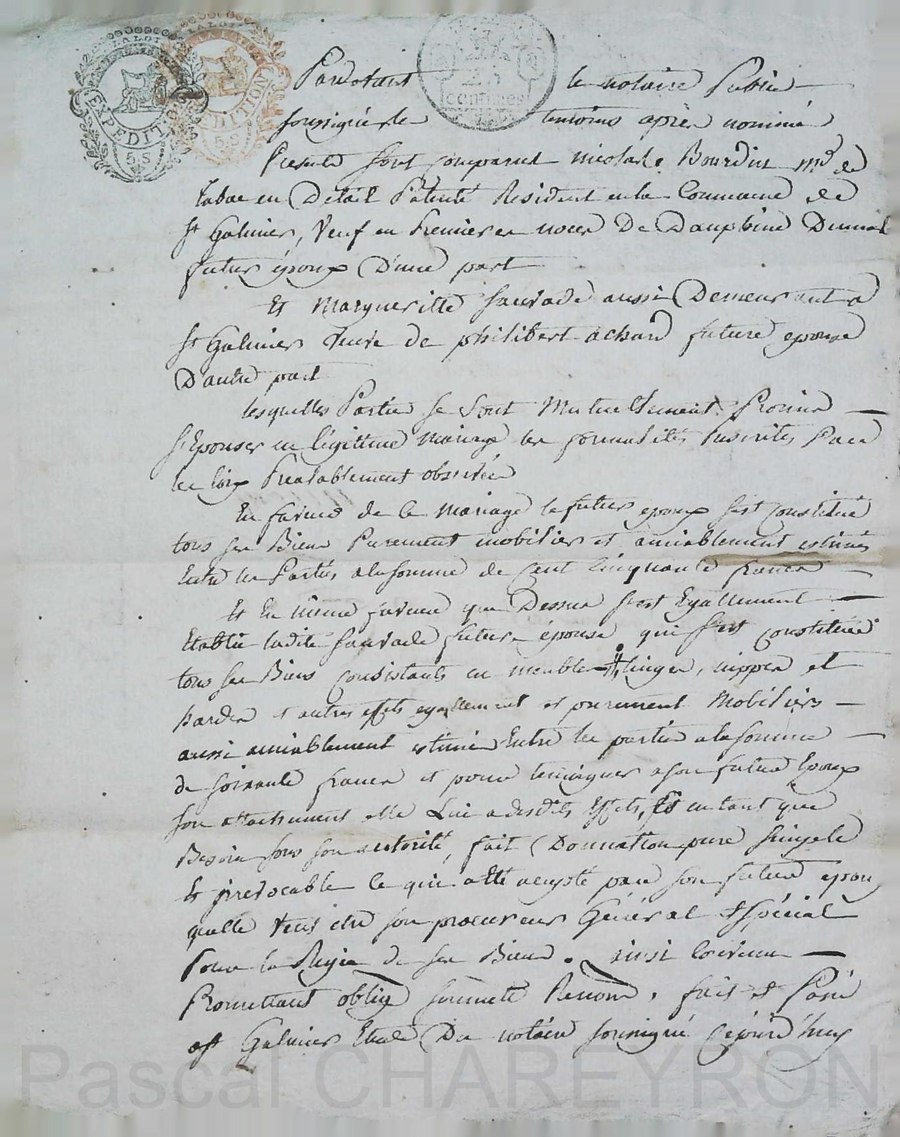 LA LOI
EXPEDIT.
5.S
25
centimes
Pardevant le notaire Public
soussigné et les temoins après nommés
Presents sont comparus nicolas Bourdin md de
tabac en Détail Patenté Résident en la Commune de
st Galmier, Veuf en Premieres noces De Dauphine Dumas
futur époux D'une part
Et Margueritte Sauvade aussi Demeurant a
st Galmier Veuve de philibert achard future epouse
D'autre part
lesquelles Parties se sont Mutuellement Promis
s'Epouser en légittime mariage les formalités Prescrites Par
les loix Prealablement observées
En faveur de ce Mariage le futur epoux s'est Constitué
tous ses Biens Purement mobiliers et amiablement estimés
Entre les Parties a la somme de Cent Cinquante francs
Et En même faveur que Dessus s'est Egallement
Etablie ladite Sauvade future épouse qui s'est constituée
tous ses Biens Consistants en meubles linges, nippes et
hardes et autres effets egallement et purement Mobiliers
aussi amiablement estimés Entre les parties a la somme
de soixante francs et pour temoigner a son futur Epoux
son attachement elle Lui a desdits Effets, et en tant que
Besoin sous son autorité, fait Donnation pure simple
et irrevocable ce qui a été accepté par son futur epoux
quelle veut etre son procureur Général et spécial
Pour la Regie de ses Biens. ainsi Convenu
Promettant oblig soumett Renon. fait et Passé
a st Galmier Etude Du notaire soussigné Cejourd'huy
Pascal CHAREYRON